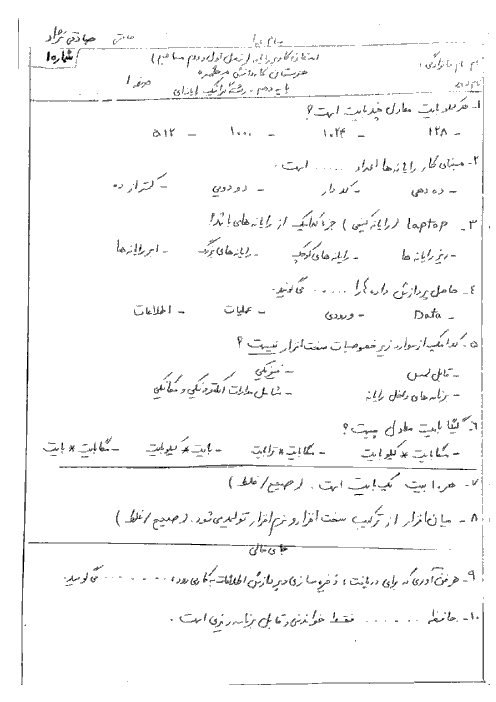 بنام خدا
صادقی نژاد
شماره ۱
نام نام خانوادگی:
صفحه ۱
۱- هر کیلو بایت معادل چند بایت است؟
- ۱۲۸ - ۱۰۲۴ - ۱۰۰۰ - ۵۱۲
۲- مبنای کار رایانه ها اعداد ...... است.
- ده دهی - کد دار - دودویی - کمتر از ده
۳- laptop (رایانه کیفی) جزء کدامیک از رایانه های باشد؟
- ریز رایانه ها - رایانه های کوچک - رایانه های بزرگ - ابر رایانه ها
۴- حاصل پردازش داده ها را ...... می گویند.
- Data - ورودی - عملیات - اطلاعات
۵- کدامیک از موارد زیر خصوصیات سخت افزار نیست؟
- قابل لمس - فیزیکی
- برنامه های داخل رایانه - شامل مدارات الکترونیکی و مکانیکی
۶- گیگا بایت معادل چیست؟
- مگابایت * کیلوبایت - مگابایت * ترابایت - بایت * کیلوبایت - مگابایت * بایت
۷- هر ۱۰ بیت یک بایت است. (صحیح/غلط)
۸- میان افزار از ترکیب سخت افزار و نرم افزار تولید می شود. (صحیح/غلط)
جای خالی
۹- هر فن آوری که برای دریافت، ذخیره سازی و پردازش اطلاعات به کار می رود، ........ می گویند.
۱۰- حافظه ...... فقط خواندنی و قابل برنامه ریزی است.